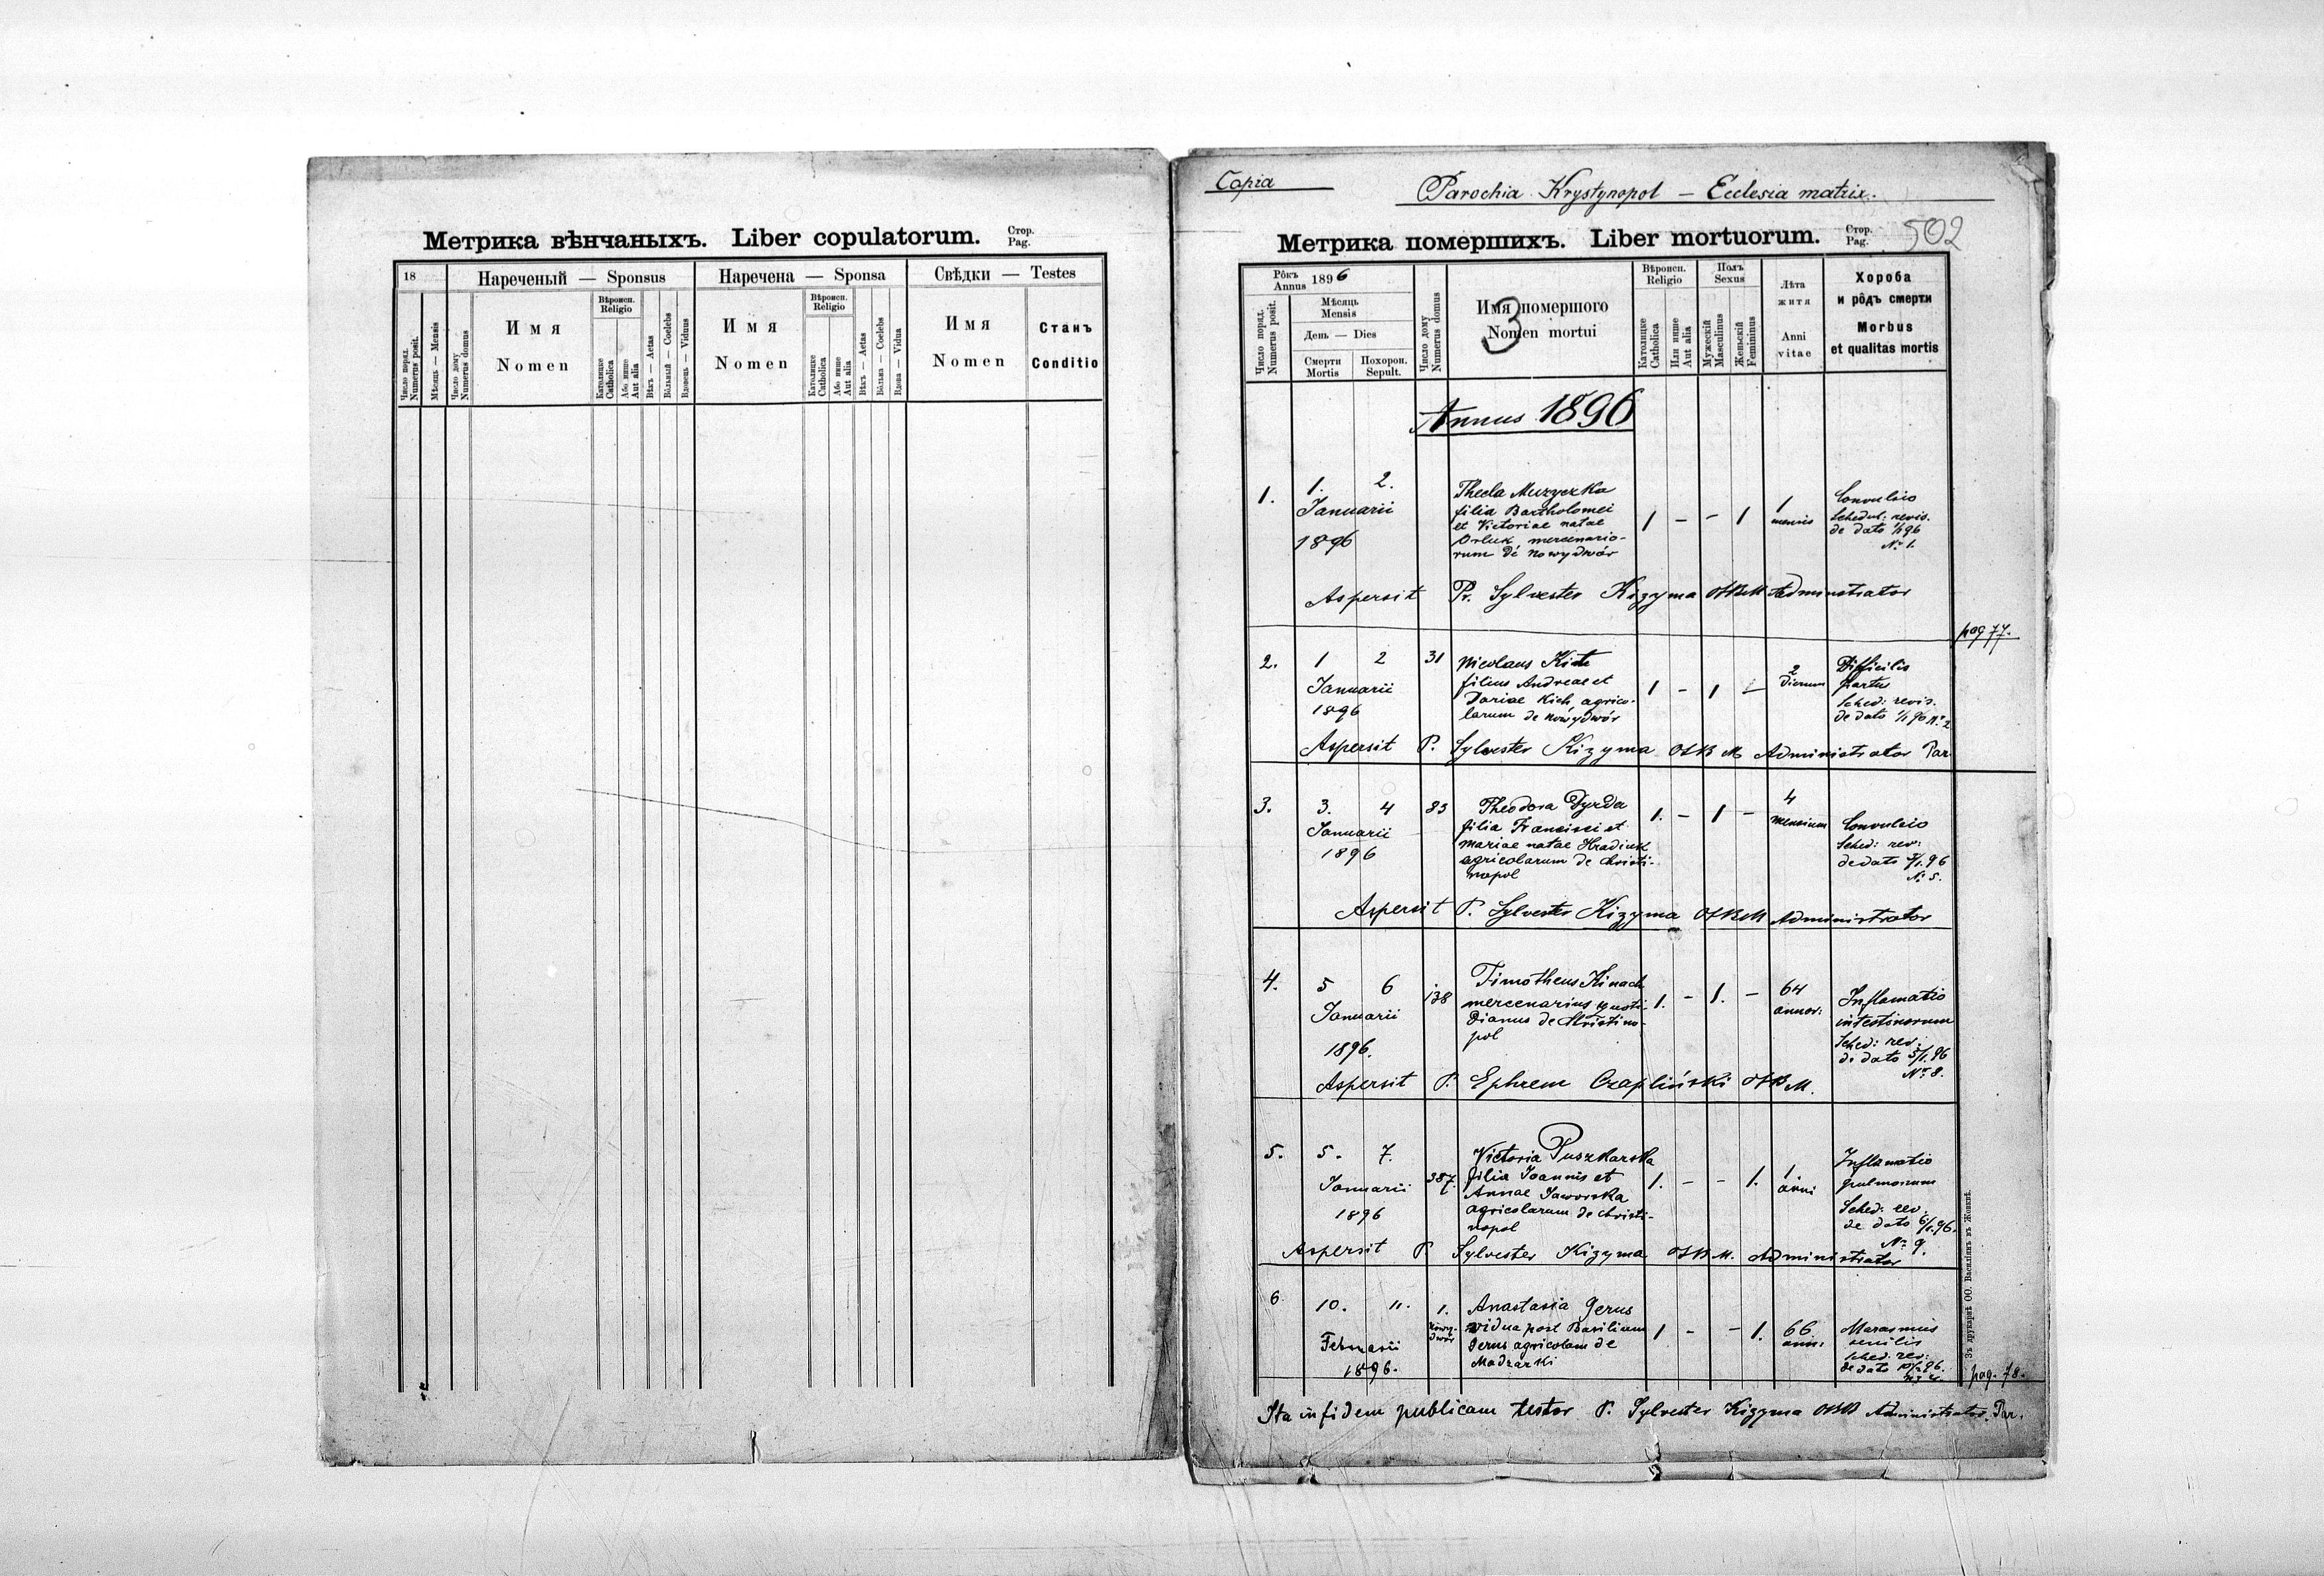 Метрика вѣнчаныхъ. Liber copulatorum. Стор. Pag.
18
Нареченый — Sponsus
Наречена — Sponsa
Свѣдки — Testes
Число поряд. Numerus posit.
Мѣсяць — Mensis
Число дому Numerus domus
Имя
Nomen
Вѣроисп. Religio
Католицке Catholica
Або инше Aut alia
Вѣкъ — Aetas
Вôльный — Coelebs
Вдовець — Viduus
Имя
Nomen
Вѣроисп. Religio
Католицке Catholica
Або инше Aut alia
Вѣкъ — Aetas
Вôльна — Coelebs
Вдова — Vidua
Имя
Nomen
Станъ
Conditio
Copia
Parochia Krystynopol — Ecclesia matrix.
Метрика померших. Liber mortuorum. Стор. Pag. 502
Рôкъ Annus 1896
Число поряд. Numerus posit.
Мѣсяць Mensis
День — Dies
Смерти Mortis
Похорон. Sepult.
Число дому Numerus domus
Имя померщого
Nomen mortui
3
Вѣроисп. Religio
Католицке Catholica
Или инше Aut alia
Полъ Sexus
Мужескій Masculinus
Женьскій Femininus
Лѣта житя
Anni vitae
Хороба
и рôдъ смерти
Morbus
et qualitas mortis
Annus 1896
1. 1. 2. Januarii 1896
Thecla Muzyczka
filia Bartholomei
et Victoriae natae
Orluk mercenario-
rum de Nowydwór
1 - - 1
1 mensis
Convulsio
Schedul: revis.
de dato 1/1 96
№ 1.
Aspersit Pr. Sylvester Kizyma OSBM Administrator
pag 77.
2. 1 2 Januarii 1896
31
Nicolaus Kich
filius Andreae et
Dariae Kich agrico-
larum de Nowydwór
1 - 1 -
2 dierum
Difficilis
partus
Sched: revis.
de dato 1/1 96 № 2
Aspersit P. Sylvester Kizyma OSBM Administrator Par.
3. 3. 4 Januarii 1896
83
Theodora Dyrda
filia Francisci et
Mariae natae Hradiuk
agricolarum de Christi-
nopol
1. - 1 -
4 mensium
Convulsio
Sched: rev:
de dato 3/1. 96
№ 5.
Aspersit P. Sylvester Kizyma OSBM Administrator
4. 5 6 Januarii 1896.
138
Timotheus Kinach
mercenarius quoti-
dianus de Christino-
pol
1. - 1. -
64 annor:
Inflamatio
intestinorum
Sched: rev:
de dato 5/1. 96
№ 8.
Aspersit P. Ephrem Czapliński OSBM.
5. 5. 7. Januarii 1896
387.
Victoria Puszkarska
filia Joannis et
Annae Jaworska
agricolarum de Christi-
nopol
1. - - 1.
1 anni
Inflamatio
pulmonum
Sched: rev.
de dato 6/1. 96.
№ 9.
Aspersit P Sylvester Kizyma OSBM. Administrator
6. 10. 11. Februarii 1896.
1. Nowy-dwór
Anastasia Gerus
vidua post Basilium
Gerus agricolam de
Madzarki
1 - - 1.
66 anni
Marasmus
senilis
Sched: rev:
de dato 10/2 96.
pag. 78.
Зъ друкарнѣ ОО. Василіянъ въ Жовквѣ.
Ita in fidem publicam testor P. Sylvester Kizyma OSBM Administrator Par.